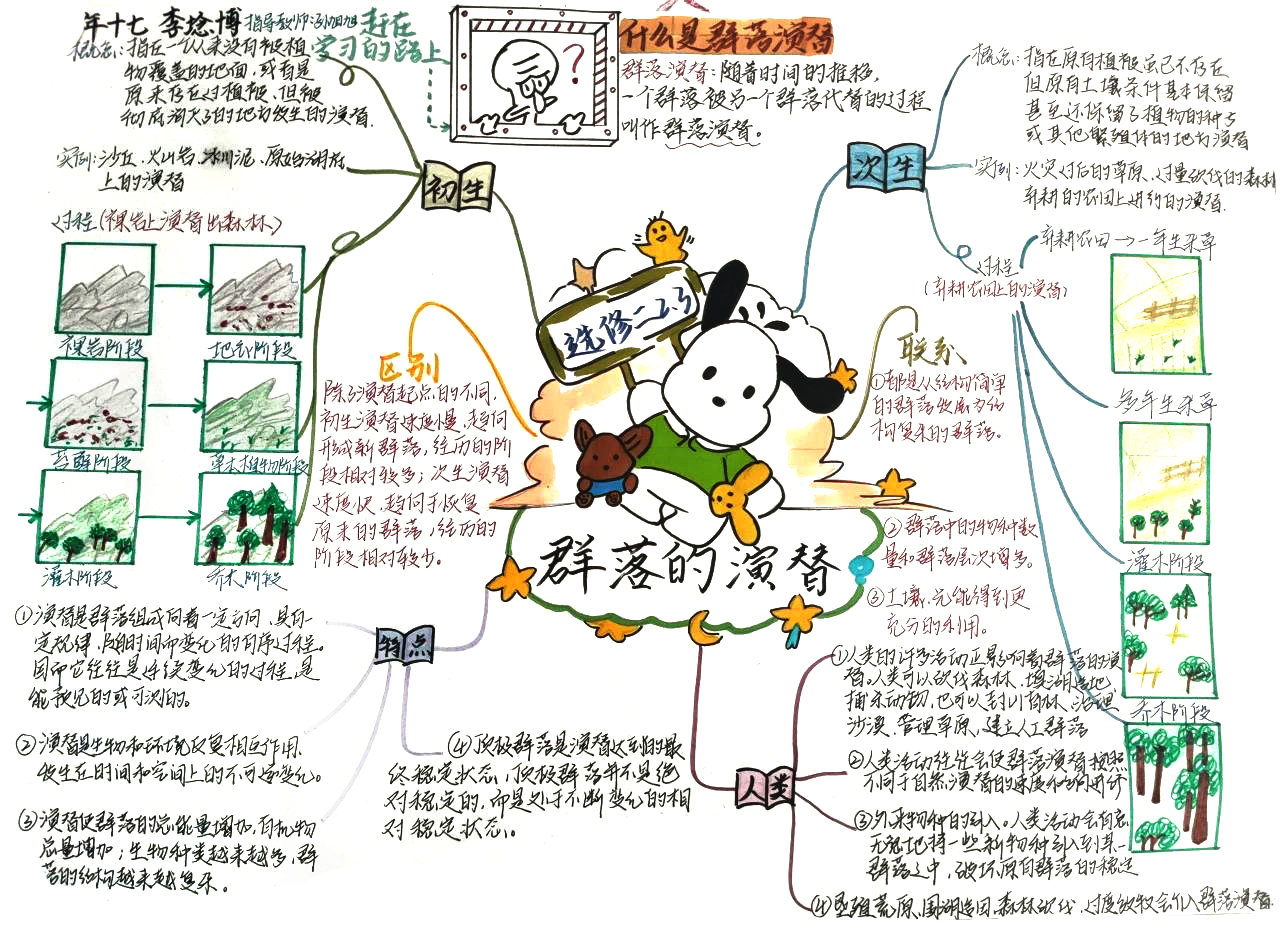 年十七 李埝博 指导教师:孙旭旭
赶在
学习的路上
什么是群落演替
群落演替:随着时间的推移,
一个群落被另一个群落代替的过程
叫作群落演替。
?
初生
概念:指在一个从来没有被植
物覆盖的地面,或者是
原来存在过植被,但被
彻底消灭了的地方发生的演替.
实例:沙丘、火山岩、冰川泥、原始湖底
上的演替
过程(裸岩上演替出森林)
裸岩阶段
地衣阶段
苔藓阶段
草本植物阶段
灌木阶段
乔木阶段
次生
概念:指在原有植被虽已不存在
但原有土壤条件基本保留
甚至还保留了植物的种子
或其他繁殖体的地方演替
实例:火灾过后的草原、过量砍伐的森林
弃耕的农田上进行的演替.
过程
(弃耕农田上的演替)
弃耕农田→一年生杂草
多年生杂草
灌木阶段
乔木阶段
选修二2.3
区别
除了演替起点的不同,
初生演替速度慢,趋向
形成新群落,经历的阶
段相对较多;次生演替
速度快,趋向于恢复
原来的群落,经历的
阶段相对较少。
联系
①都是从结构简单
的群落发展为结
构复杂的群落。
②群落中的物种数
量和群落层次增多。
③土壤、光能得到更
充分的利用。
群落的演替
特点
①演替是群落组成向着一定方向,具有一
定规律,随时间而变化的有序过程。
因而它往往是连续变化的过程,是
能预见的或可测的。
②演替是生物和环境反复相互作用,
发生在时间和空间上的不可逆变化。
③演替使群落的总能量增加,有机物
总量增加;生物种类越来越多,群
落的结构越来越复杂。
④顶极群落是演替达到的最
终稳定状态,顶极群落并不是绝
对稳定的,而是处于不断变化的相
对稳定状态。
人类
①人类的许多活动正影响着群落的演
替,人类可以砍伐森林、填湖造地、
捕杀动物,也可以封山育林、治理
沙漠、管理草原,建立人工群落
②人类活动往往会使群落演替按照
不同于自然演替的速度和方向进行
③外来物种的引入。人类活动会有意
无意地将一些新物种引入到某一
群落之中,破坏原有群落的稳定
④垦殖荒原、围湖造田、森林砍伐、过度放牧会介入群落演替.